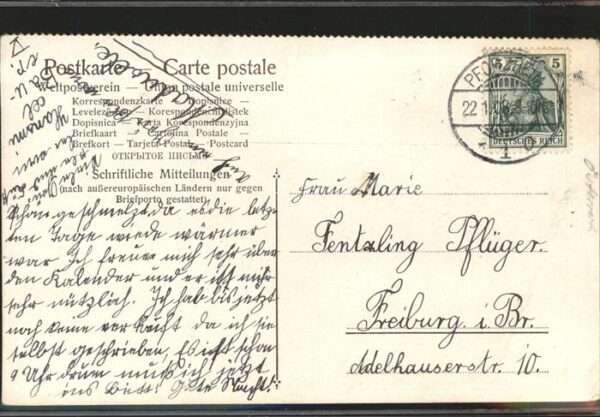 Postkarte — Carte postale
Weltpostverein — Union postale universelle
Korrespondenzkarte — Dopisnice —
Levelező — Korespondenční listek
Dopisnica — Karta Korespondenzyjna
Briefkaart — Cartolina Postale —
Brefkort — Tarjeta Postal — Postcard
ОТКРЫТОЕ ПИСЬМО
Schriftliche Mitteilungen
(nach außereuropäischen Ländern nur gegen
Briefporto gestattet)
schon geschmelzt da es die letz-
ten Tage wiede wärmer
war Ich freue mich sehr über
den Kalender und er ist mir
sehr nützlich. Ich hab bis jetzt
noch keine verkauft da ich sie
selbst geschrieben, Es ist schon
9 Uhr drum muß ich jetzt
ins Bett! Gute Nacht!
5
PFORZHEIM
22 1
1
DEUTSCHES REICH
Frau Marie
Fentzling Pflüger.
Freiburg i. Br.
Adelhauserstr. 10.